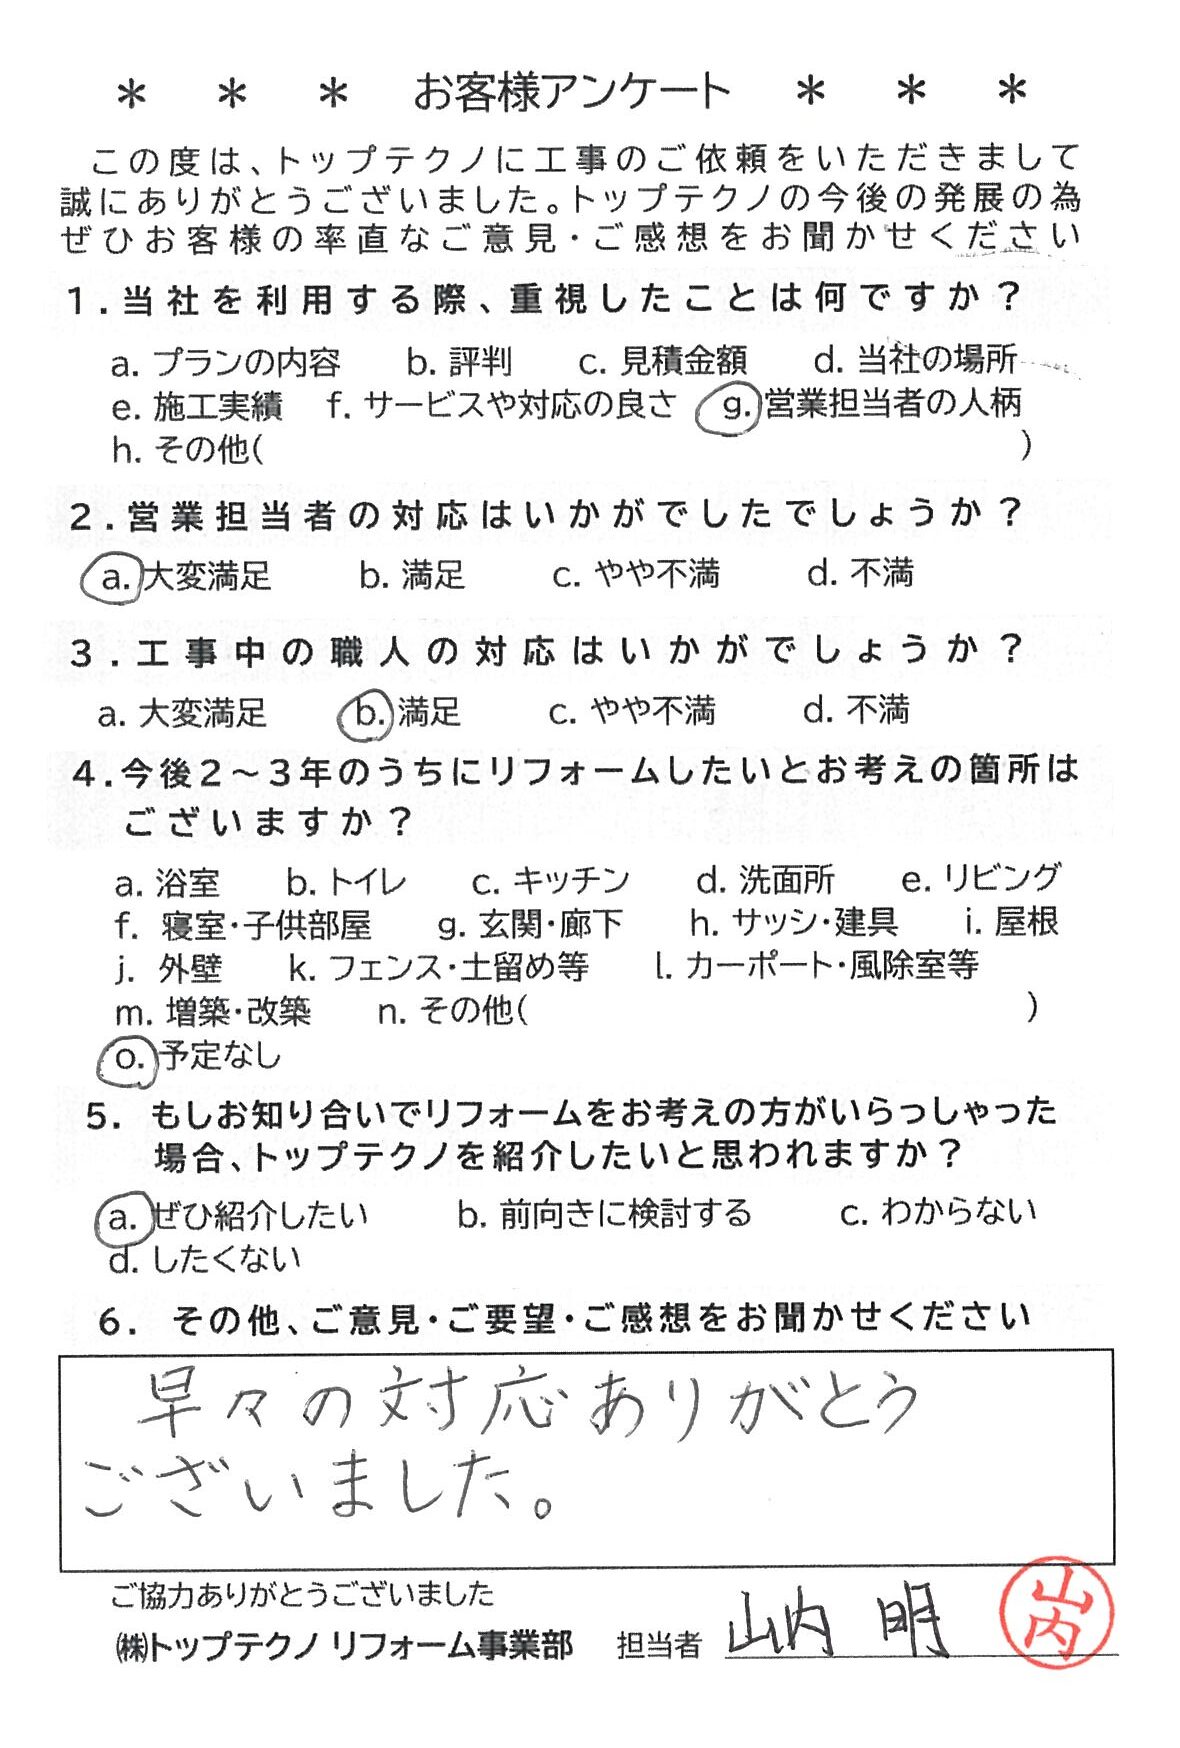 ＊ ＊ ＊ お客様アンケート ＊ ＊ ＊
この度は、トップテクノに工事のご依頼をいただきまして
誠にありがとうございました。トップテクノの今後の発展の為
ぜひお客様の率直なご意見・ご感想をお聞かせください
1.当社を利用する際、重視したことは何ですか？
a. プランの内容 b. 評判 c. 見積金額 d. 当社の場所
e. 施工実績 f. サービスや対応の良さ g. 営業担当者の人柄
h. その他( )
2.営業担当者の対応はいかがでしたでしょうか？
a. 大変満足 b. 満足 c. やや不満 d. 不満
3.工事中の職人の対応はいかがでしょうか？
a. 大変満足 b. 満足 c. やや不満 d. 不満
4.今後2～3年のうちにリフォームしたいとお考えの箇所は
ございますか？
a. 浴室 b. トイレ c. キッチン d. 洗面所 e. リビング
f. 寝室・子供部屋 g. 玄関・廊下 h. サッシ・建具 i. 屋根
j. 外壁 k. フェンス・土留め等 l. カーポート・風除室等
m. 増築・改築 n. その他( )
o. 予定なし
5. もしお知り合いでリフォームをお考えの方がいらっしゃった
場合、トップテクノを紹介したいと思われますか？
a. ぜひ紹介したい b. 前向きに検討する c. わからない
d. したくない
6. その他、ご意見・ご要望・ご感想をお聞かせください
早々の対応ありがとう
ございました。
ご協力ありがとうございました
㈱トップテクノ リフォーム事業部 担当者 山内 明 山内